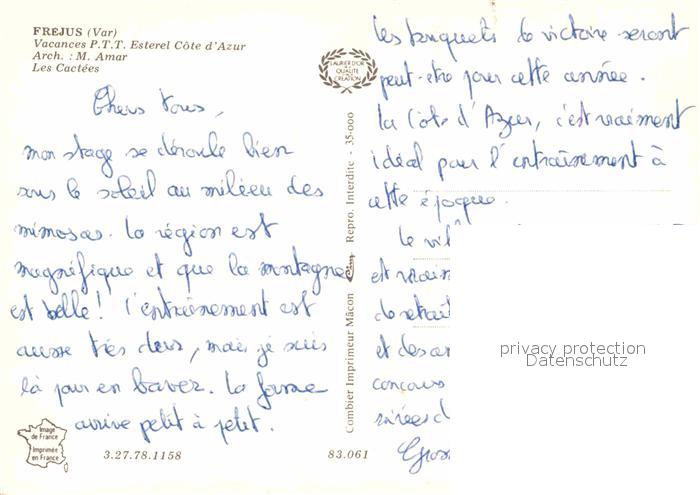 FREJUS (Var)
Vacances P.T.T. Esterel Côte d'Azur
Arch. : M. Amar
Les Cactées
LAURIER D'OR
DE LA
QUALITÉ
CRÉATION
Chers tous,
mon stage se déroule bien
sous le soleil au milieu des
mimosas. La région est
magnifique et que la montagne
est belle ! L'entrainement est
aussi très dur, mais je suis
là pour en baver. La forme
arrive petit à petit.
Image
de France
Imprimée
en France
3.27.78.1158
83.061
Combier Imprimeur Mâcon
Repro. Interdite - 35-000
Les banquets de victoire seront
peut-etre pour cette année.
La Côte d'Azur, c'est vraiment
idéal pour l'entraînement à
cette époque.
Le
et
de retrait
et des
concours
soirées d
Gros
privacy protection
Datenschutz